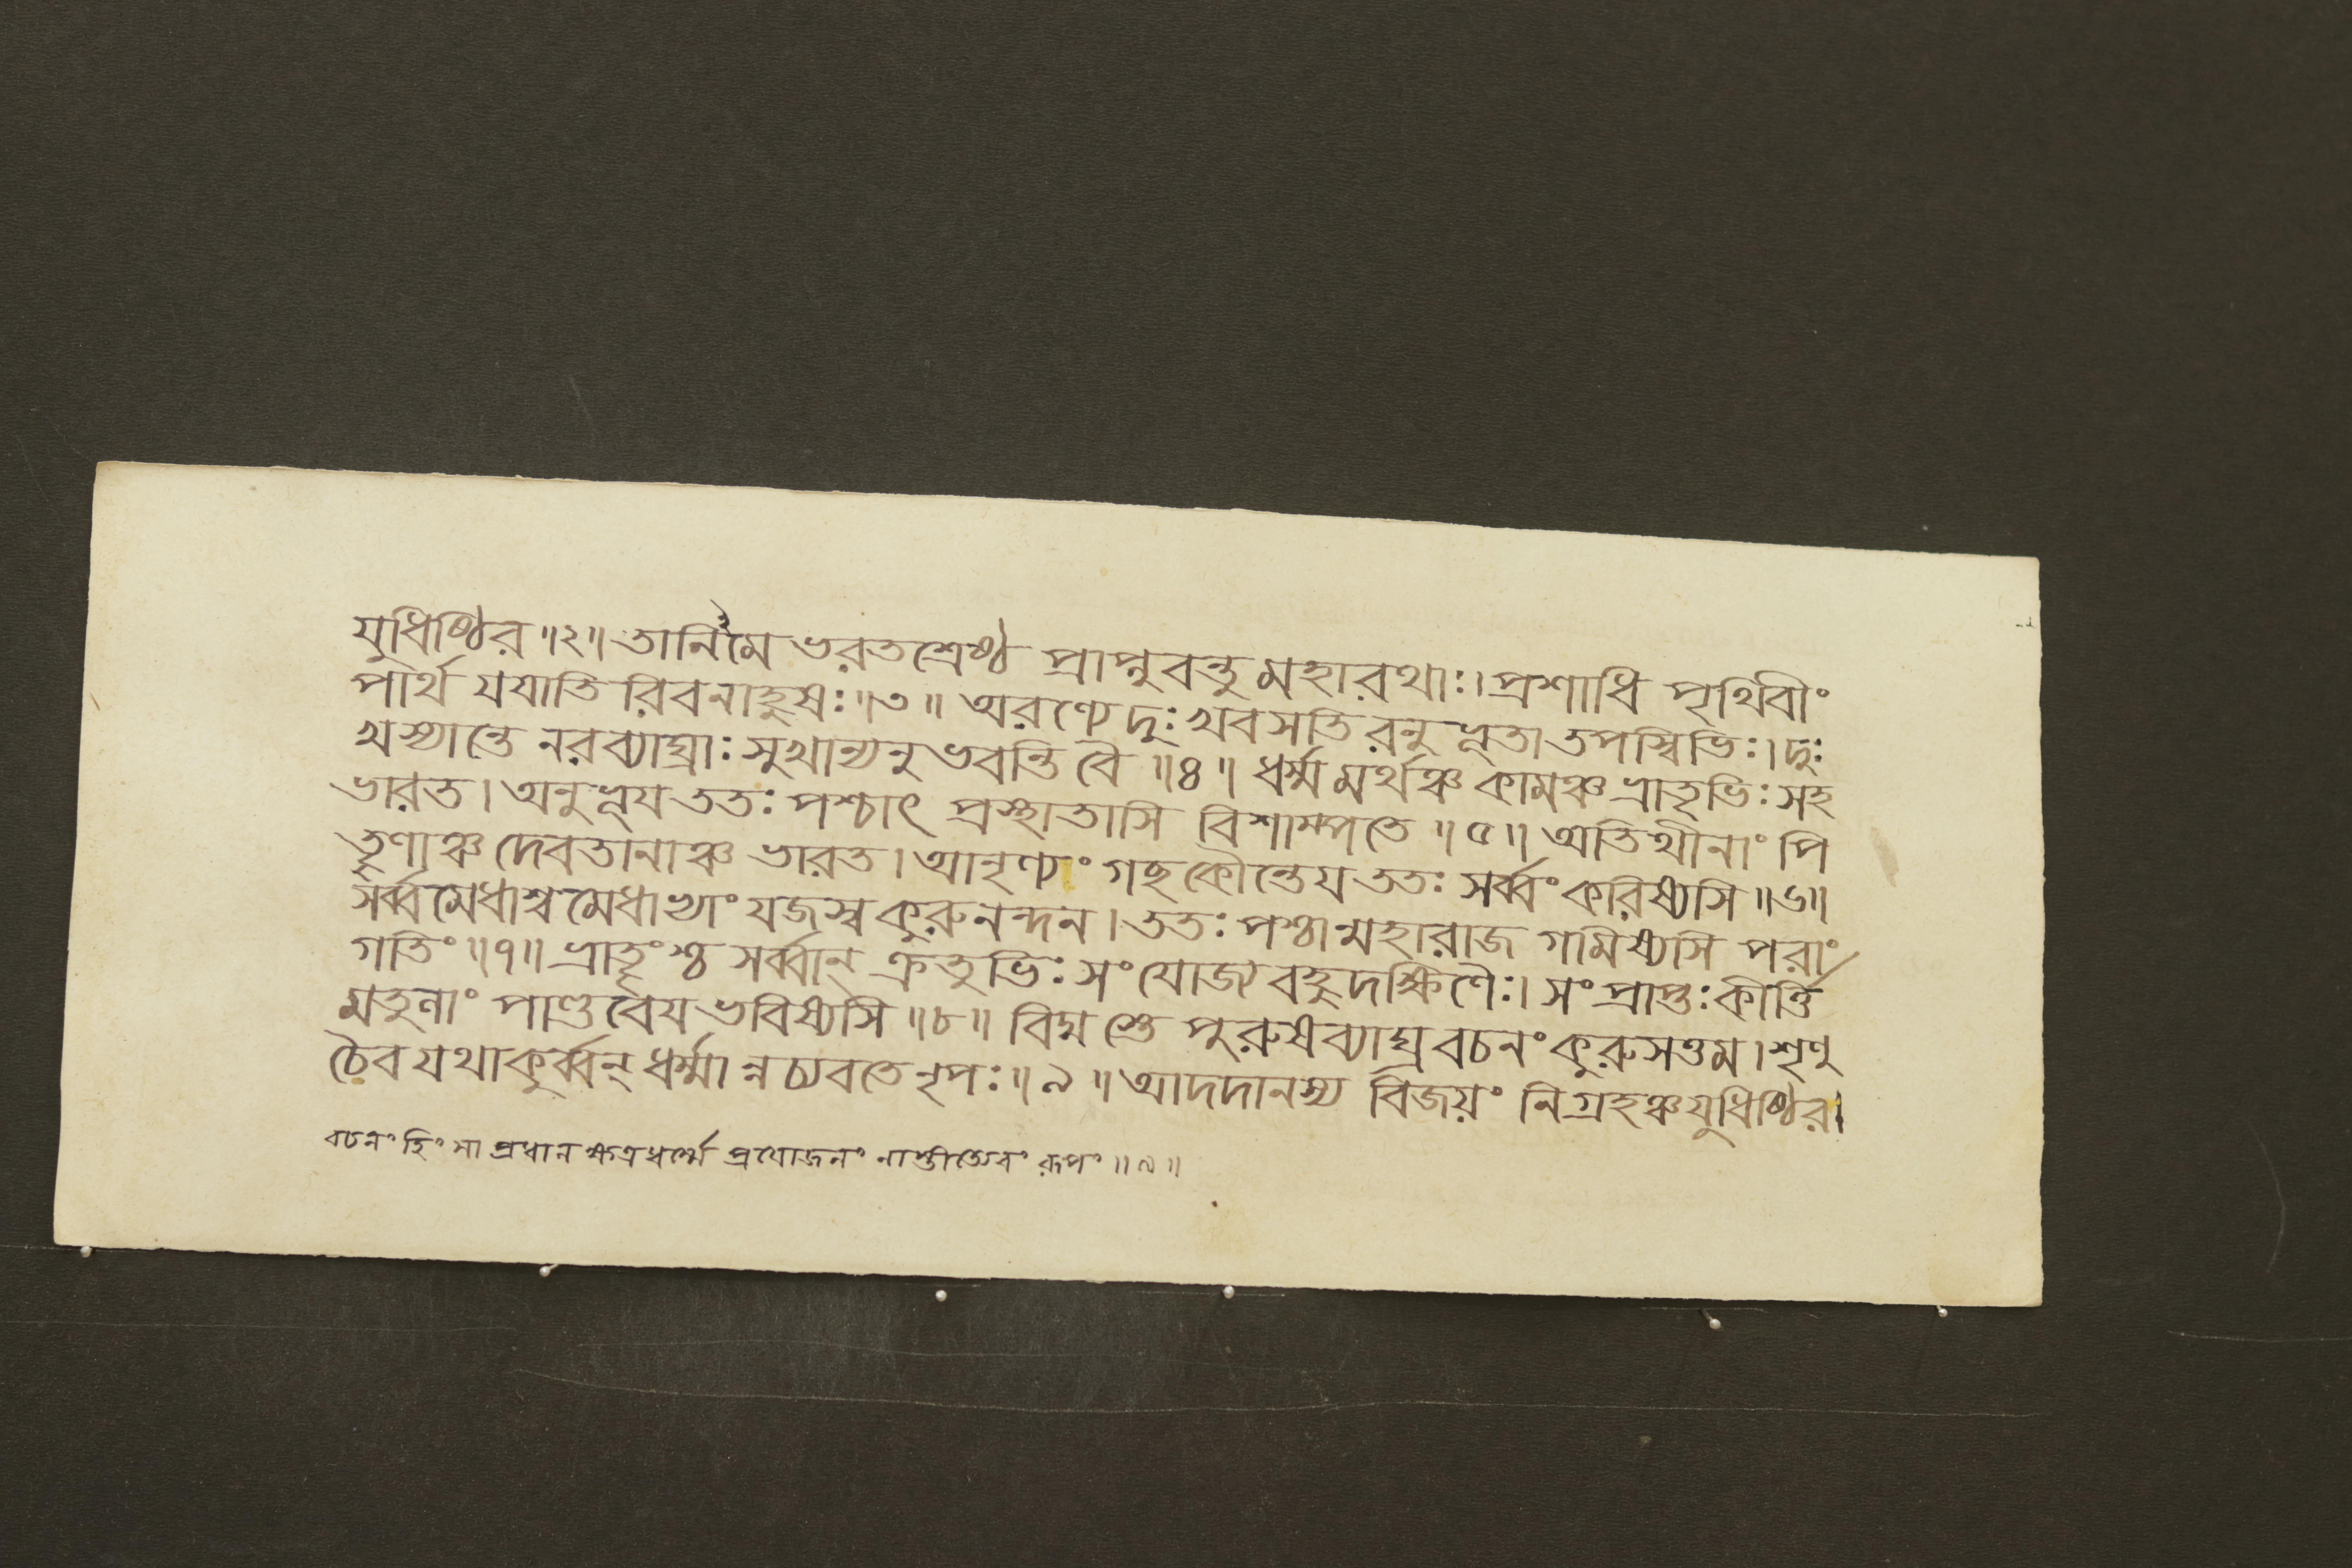 যুধিষ্ঠির ॥২॥ তানিমে ভরতশ্রেষ্ঠ প্রাপ্নুবন্তু মহারথাঃ। প্রশাধি পৃথিবীং
পার্থ যযাতি রিবনাহুষঃ ॥৩॥ অরণ্যে দুঃখবসতি রনুভূতা তপস্বিভিঃ। দুঃ
খস্যান্তে নরব্যাঘ্রাঃ সুখান্যনুভবন্তি বৈ ॥৪॥ ধর্ম্মমর্থঞ্চ কামঞ্চ ভ্রাতৃভিঃ সহ
ভারত। অনুভূয ততঃ পশ্চাৎ প্রস্থাতাসি বিশাম্পতে ॥৫॥ অতিথীনাং পি
তৃণাঞ্চ দেবতানাঞ্চ ভারত। আনৃণ্যং গছ কৌন্তেয ততঃ সর্ব্বং করিষ্যসি ॥৬॥
সর্ব্বমেধাশ্বমেধাভ্যাং যজস্ব কুরুনন্দন। ততঃ পশ্চান্মহারাজ গমিষ্যসি পরাং
গতিং ॥৭॥ ভ্রাতৃংশ্চ সর্ব্বান্ ক্রতুভিঃ সংযোজ্য বহুদক্ষিণৈঃ। সংপ্রাপ্তঃ কীর্ত্তি
মতুলাং পাণ্ডবেয ভবিষ্যসি ॥৮॥ বিদ্মস্তে পুরুষব্যাঘ্র বচনং কুরুসত্তম। শৃণু
চৈব যথাকুর্ব্বন্ ধর্ম্মান্নচ্যবতে নৃপঃ ॥৯॥ আদদানস্য বিজয়ং নিগ্রহঞ্চ যুধিষ্ঠির।
বচনং হিংসা প্রধান ক্ষত্রধর্ম্মে প্রযোজনং নাস্তীত্যেবং রূপং ॥৯॥